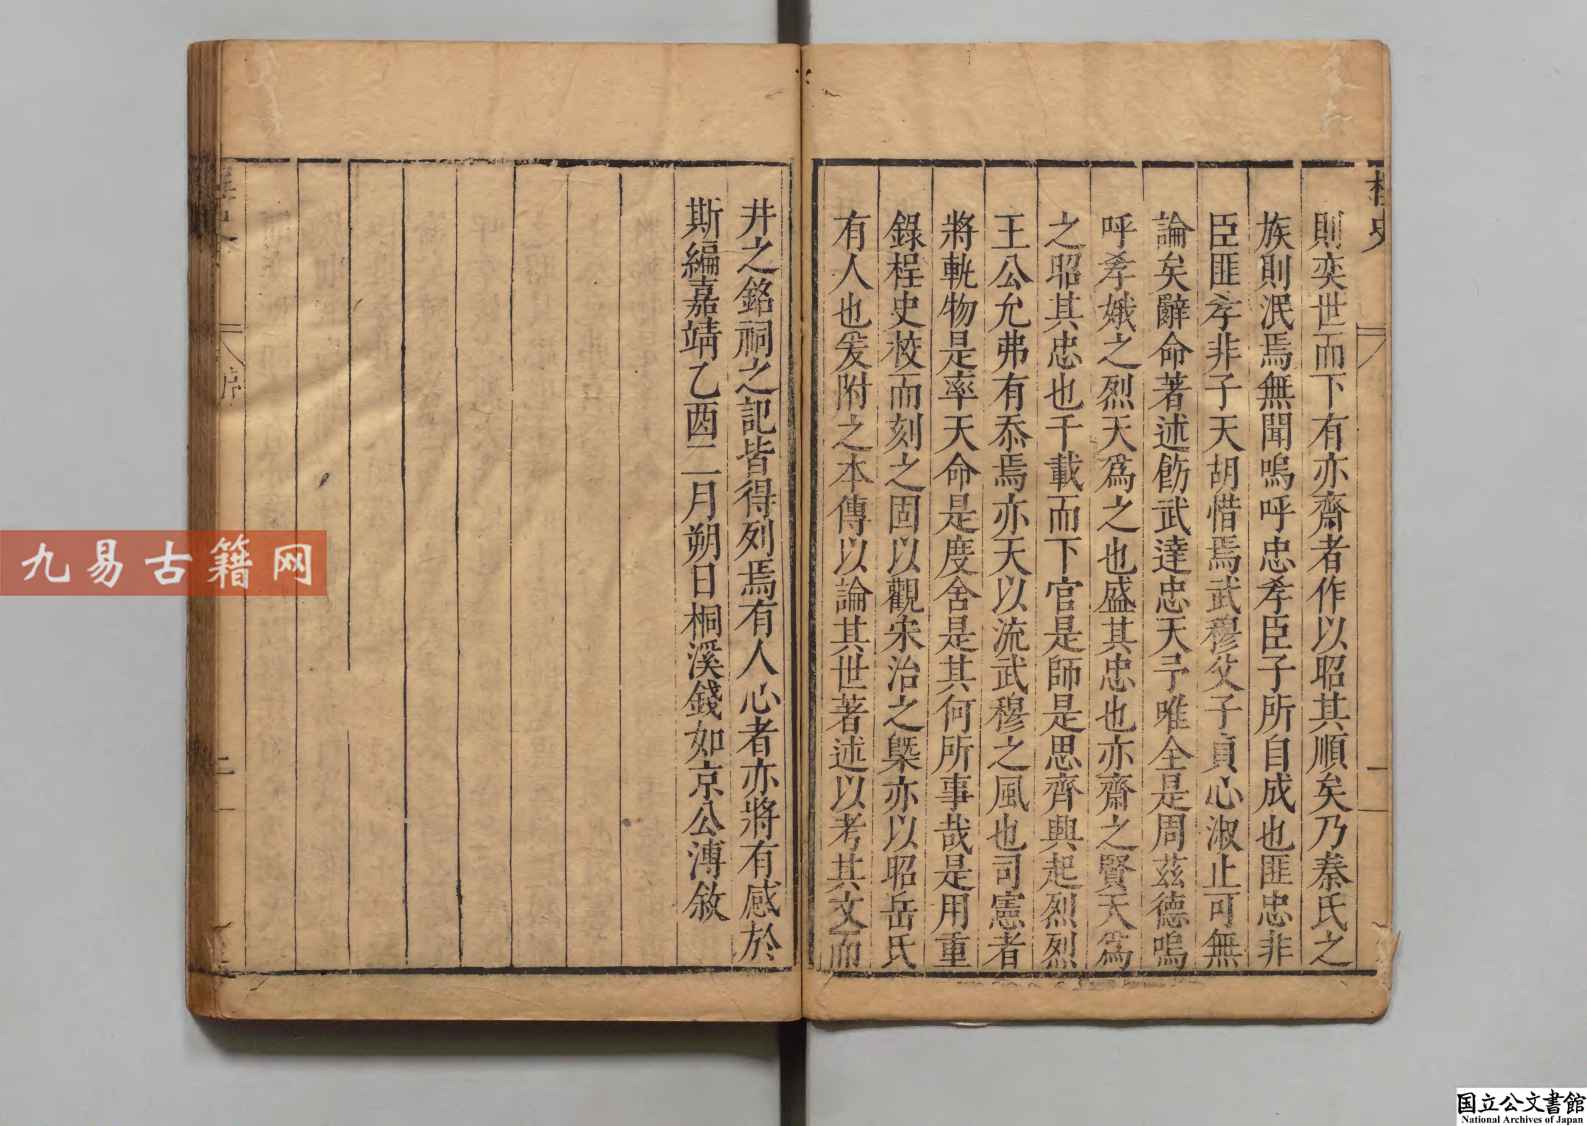 桯史
則奕世而下有亦齋者作以昭其順矣乃秦氏之
族則泯焉無聞嗚呼忠孝臣子所自成也匪忠非
臣匪孝非子天胡惜焉武穆父子貞心淑止可無
論矣辭命著述飭武達忠天予唯全是周茲德嗚
呼孝娥之烈天爲之也盛其忠也亦齋之賢天爲
之昭其忠也千載而下官是師是思齊興起烈烈
王公允弗有忝焉亦天以流武穆之風也司憲者
將軏物是率天命是度舍是其何所事哉是用重
錄桯史校而刻之固以觀宋治之槩亦以昭岳氏
有人也爰附之本傳以論其世著述以考其文而
井之銘祠之記皆得列焉有人心者亦將有感於
斯編嘉靖乙酉二月朔日桐溪錢如京公溥敘
序
二
九易古籍网
国立公文書館
National Archives of Japan